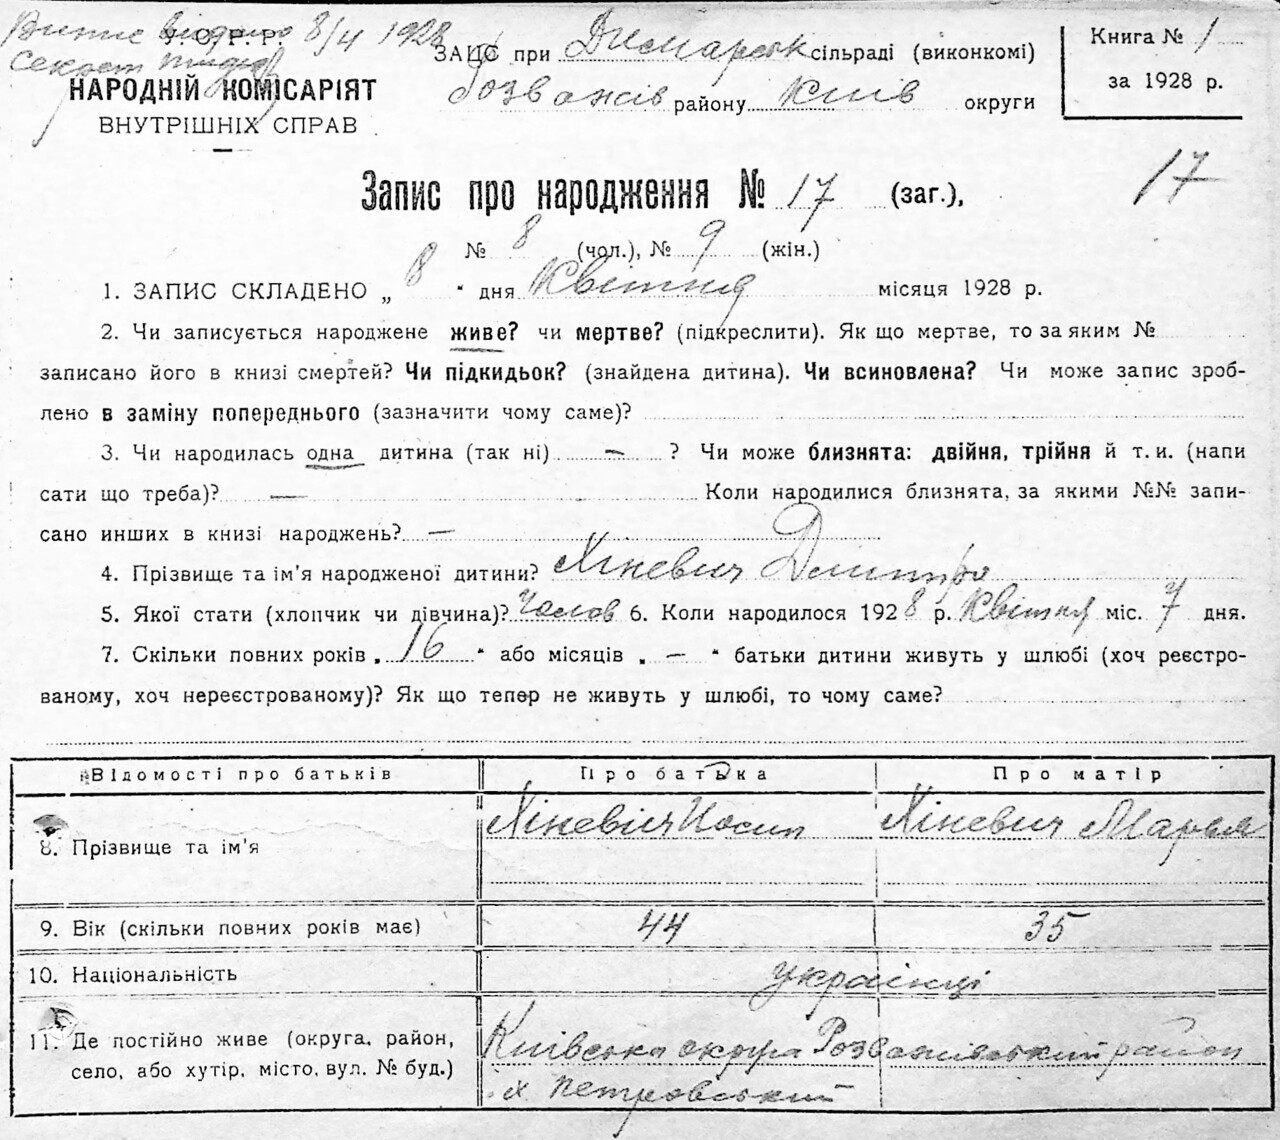 Витяг видано 8/4 1928
У. С. Р. Р.
Секрет
НАРОДНІЙ КОМІСАРІЯТ
ВНУТРІШНІХ СПРАВ
ЗАЦС при Димарськ сільраді (виконкомі)
Розважів району Київ округи
Книга № 1
за 1928 р.
17
Запис про народження № 17 (заг.),
№ 8 (чол.), № 9 (жін.)
1. ЗАПИС СКЛАДЕНО „ 8 “ дня Квітня місяця 1928 р.
2. Чи записується народжене живе? чи мертве? (підкреслити). Як що мертве, то за яким №
записано його в книзі смертей? Чи підкидьок? (знайдена дитина). Чи всиновлена? Чи може запис зроб-
лено в заміну попереднього (зазначити чому саме)?
3. Чи народилась одна дитина (так ні) — ? Чи може близнята: двійня, трійня й т. и. (напи
сати що треба)? — Коли народилися близнята, за якими №№ запи-
сано инших в книзі народжень? —
4. Прізвище та ім’я народженої дитини? Хіневич Дмитро
5. Якої стати (хлопчик чи дівчина)? Чолов 6. Коли народилося 1928 р. Квітня міс. 7 дня.
7. Скільки повних років „ 16 “ або місяців „ — “ батьки дитини живуть у шлюбі (хоч реєстро-
ваному, хоч нереєстрованому)? Як що тепер не живуть у шлюбі, то чому саме?
Відомості про батьків Про батька Про матір
8. Прізвище та ім’я Хіневич Иосип Хіневич Марья
9. Вік (скільки повних років має) 44 35
10. Національність українці
11. Де постійно живе (округа, район, Київська округа Розважівський район
село, або хутір, місто, вул. № буд.) х. Петровський